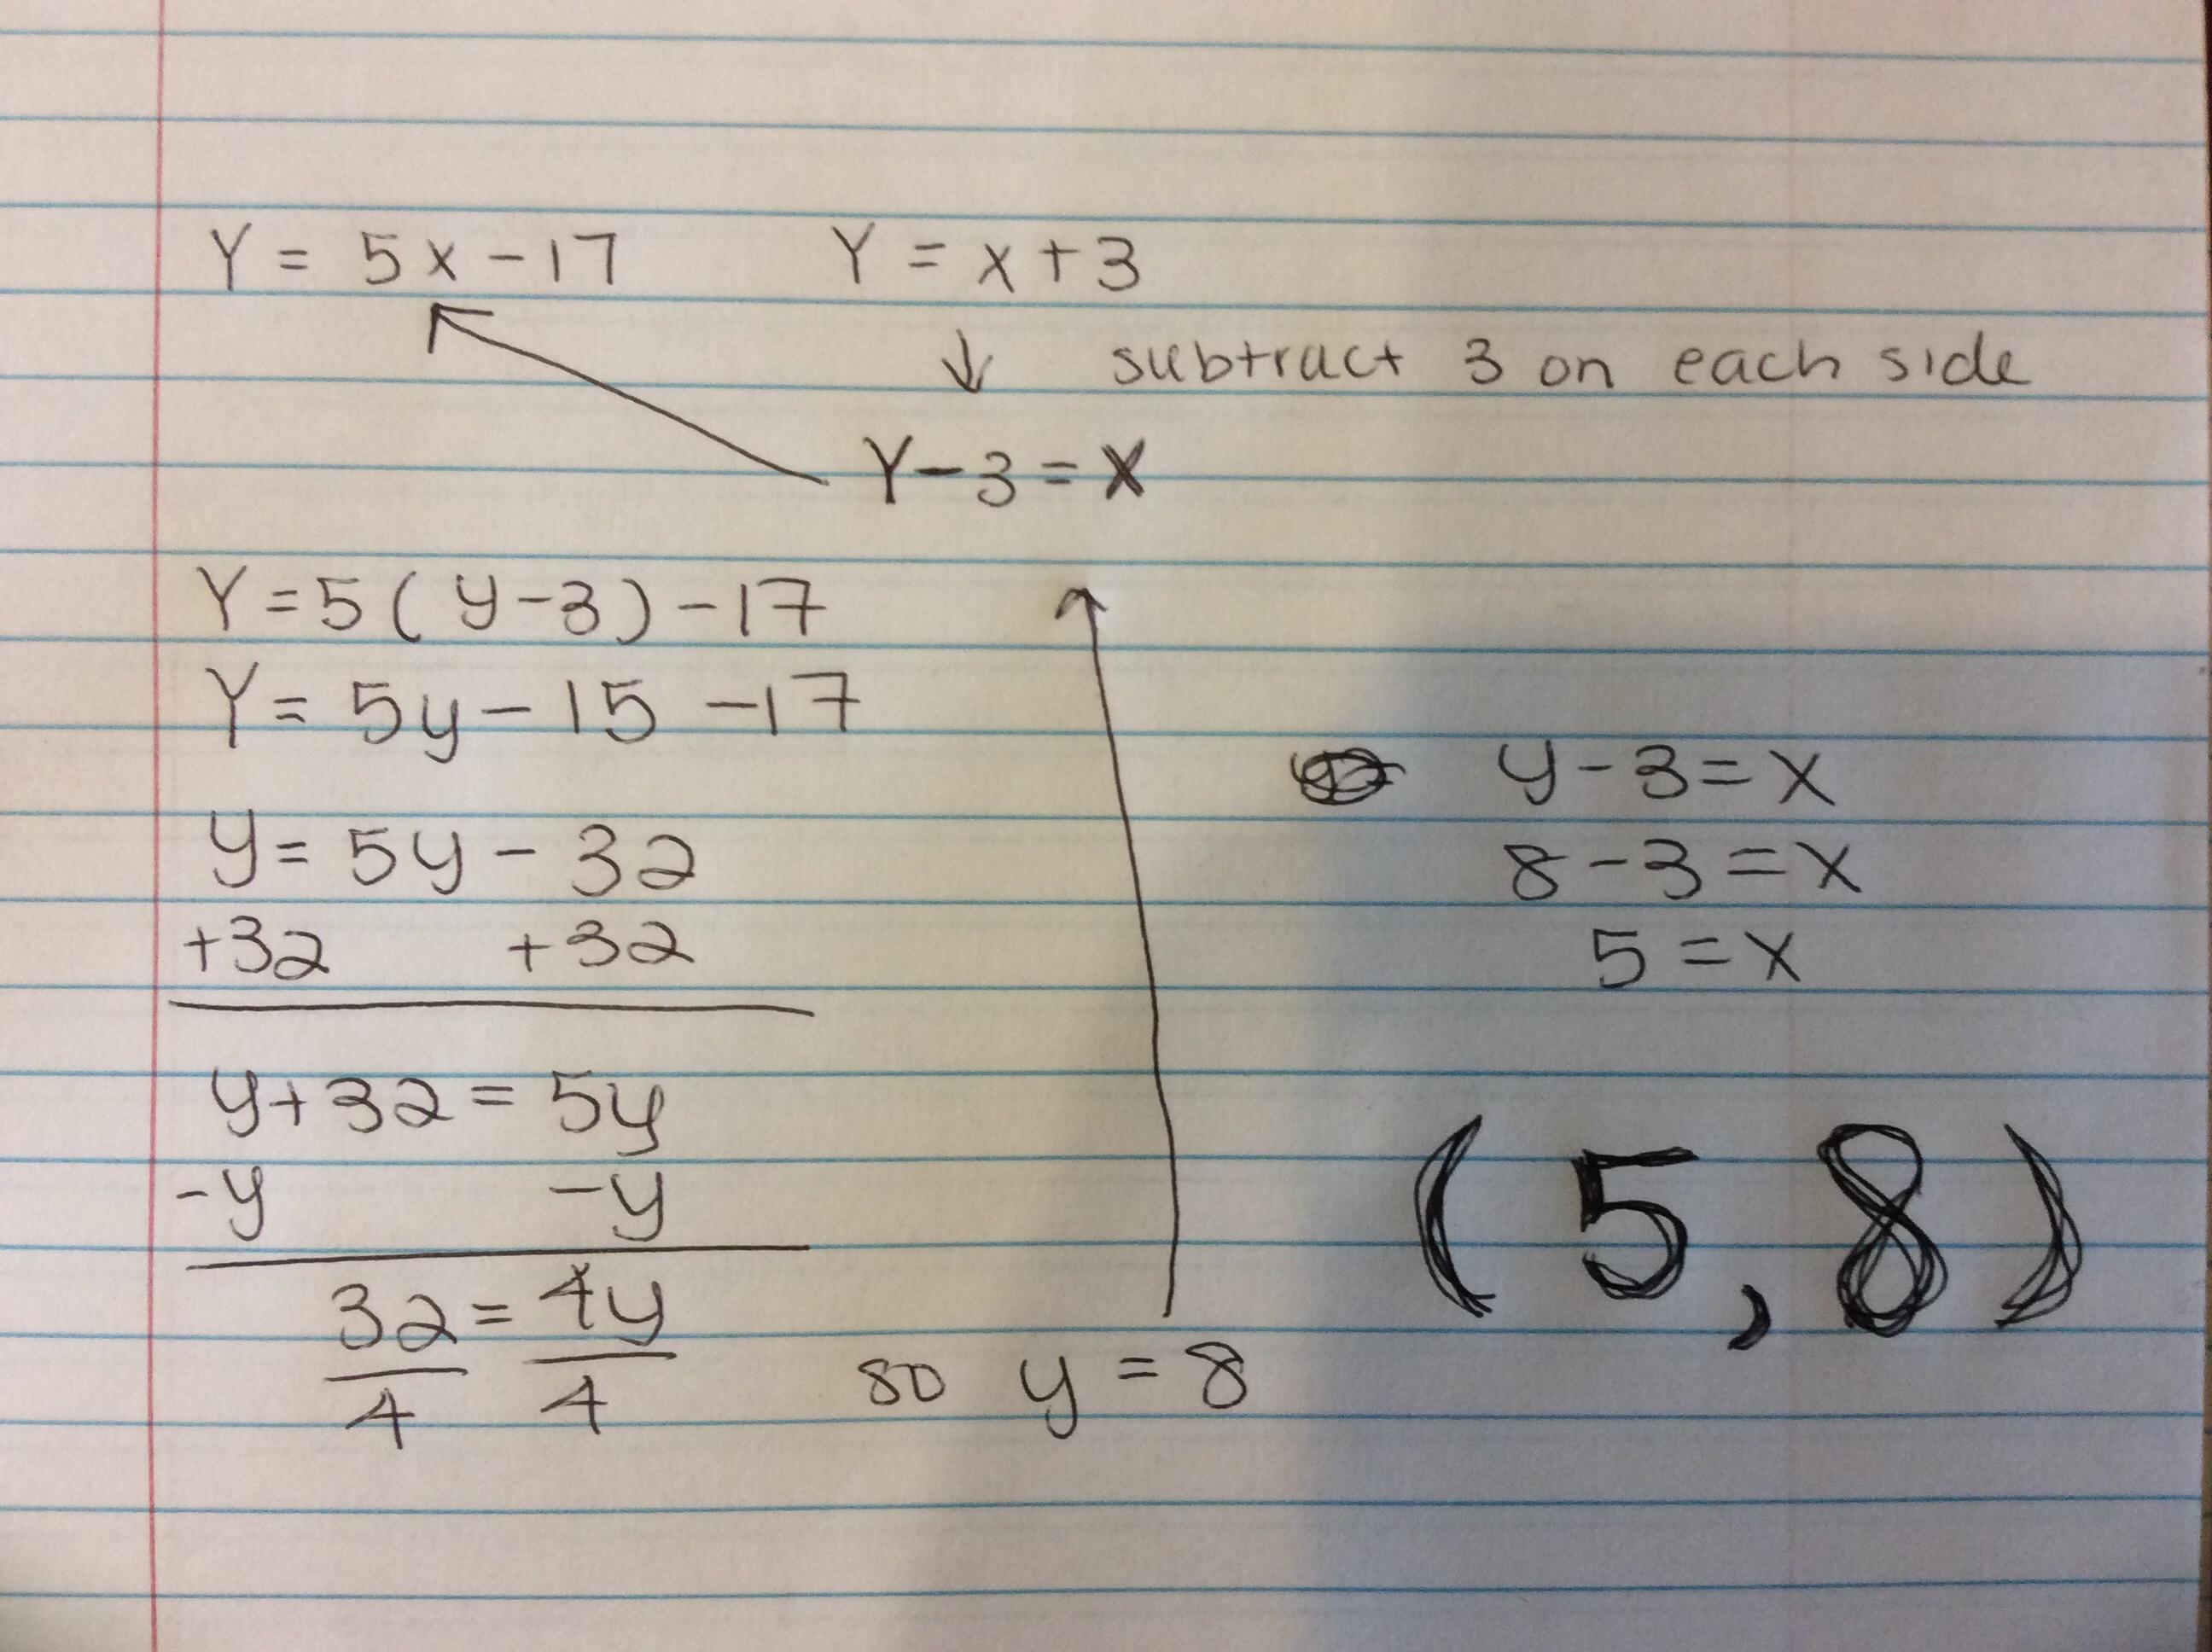 Y = 5x - 17    Y = x + 3
↓ subtract 3 on each side
Y - 3 = X
Y = 5(y - 3) - 17
Y = 5y - 15 - 17
y = 5y - 32
+32    +32
y + 32 = 5y
-y    -y
32 = 4y
4    4
so y = 8
y - 3 = x
8 - 3 = x
5 = x
(5, 8)